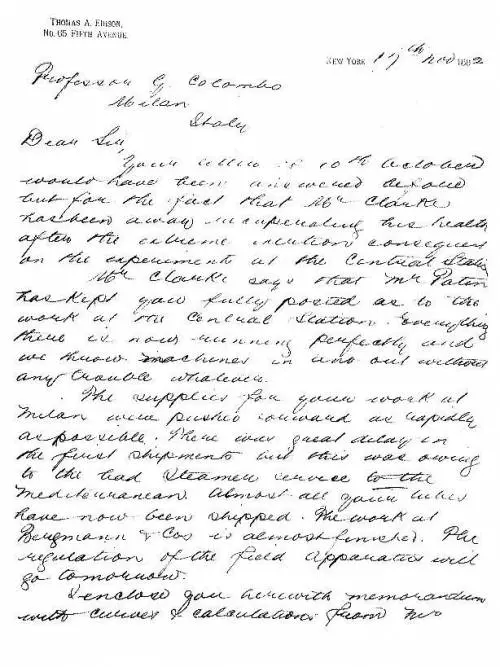 THOMAS A. EDISON,
No. 65 FIFTH AVENUE.
NEW YORK 17th Nov 1882
Professor G. Colombo
Milan
Italy
Dear Sir,
Your letter of 10th October
would have been answered before
but for the fact that Mr Clarke
has been away recuperating his health
after the extreme exertion consequent
on the experiments at the Central Station
Mr Clarke says that Mr Patin
has kept you fully posted as to the
work at the Central Station. Everything
there is now running perfectly and
we throw machines in and out without
any trouble whatever.
The supplies for your work at
Milan were pushed forward as rapidly
as possible. There was great delay in
the first shipment but this was owing
to the bad Steamer service to the
Mediterranean. Almost all your tubes
have now been shipped. The work at
Bergmann & Cos is almost finished. The
regulation of the field apparatus will
go tomorrow.
I enclose you herewith memorandum
with curves & calculations from Mr